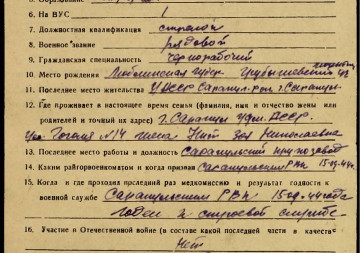 6. На ВУС 1
7. Должностная квалификация стрелок
8. Военное звание рядовой
9. Гражданская специальность чернорабочий
10. Место рождения Люблинская губер. Грубешевский
11. Последнее место жительства УАССР Сарапул. г. Сарапул
12. Где проживает в настоящее время семья (фамилия, имя и отчество жены или
родителей и точный их адрес) г. Сарапул Удм. АССР.
ул. Гоголя №14 жена Зоя Николаевна
13. Последнее место работы и должность Сарапульский
14. Каким райгорвоенкоматом и когда призван Сарапульским РВК 15.09.44г.
15. Когда и где проходил последний раз медкомиссию и результат годности к
военной службе Сарапульским РВК 15.09.44года
годен к строевой службе.
16. Участие в Отечественной войне (в составе какой последней части в качестве
Нет